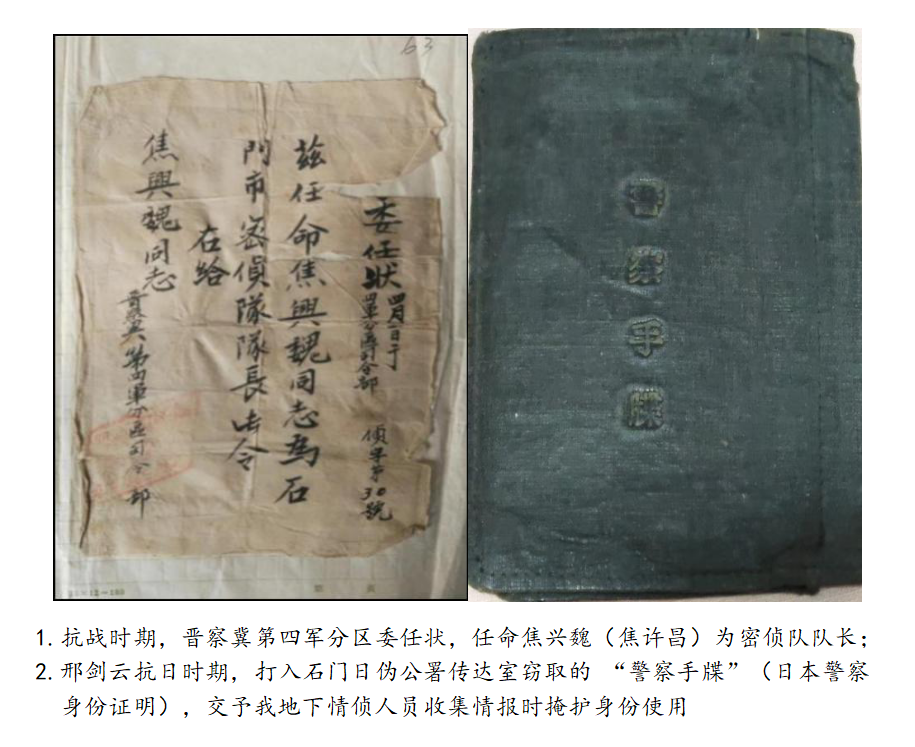 63
委任状
四月一日于
四軍分區司令部
偵字第30號
茲任命焦興魏同志為石
門市密偵隊隊長此令
右給
焦興魏同志
晋察冀第四軍分區司令部
警察手牒
1. 抗战时期，晋察冀第四军分区委任状，任命焦兴魏（焦许昌）为密侦队队长；
2. 邢剑云抗日时期，打入石门日伪公署传达室窃取的 “警察手牒”（日本警察
身份证明），交予我地下情侦人员收集情报时掩护身份使用